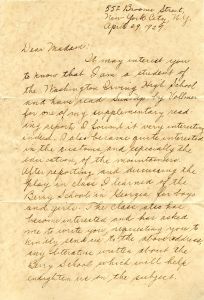 552 Broome Street,
New York City, N.Y.
April 29, 1929
Dear Madam:
It may interest you
to know that I am a student of
the Washington Irving High School
and have read Sunup by Vollmer
for one of my supplementary read
ing reports. I found it very interesting
indeed. I also became quite interested
in the customs, and especially the
education, of the mountaineers.
After reporting and discussing the
play in class I learned of the
Berry Schools in Georgia for boys
and girls. The class also has
become interested and has asked
me to write you, requesting you to
kindly send us to the above address
any literature written about the
Berry School which will help
enlighten us on the subject.